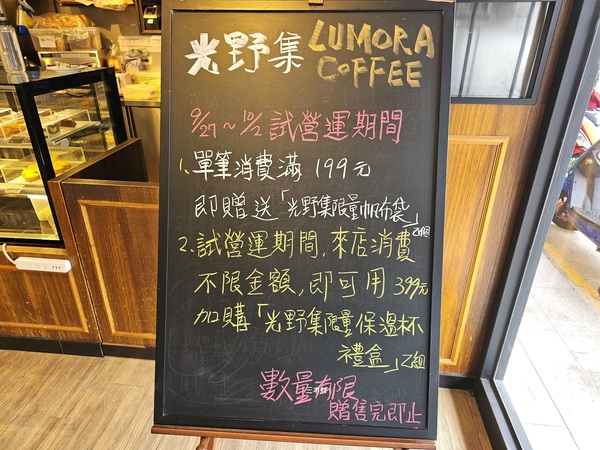 光野集 LUMORA COFFEE
9/27~10/2 試營運期間
1. 單筆消費滿 199元
即贈送「光野集限量帆布袋」乙個
2. 試營運期間,來店消費
不限金額,即可用 399元
加購「光野集限量保溫杯
禮盒」乙組
數量有限
贈售完即止